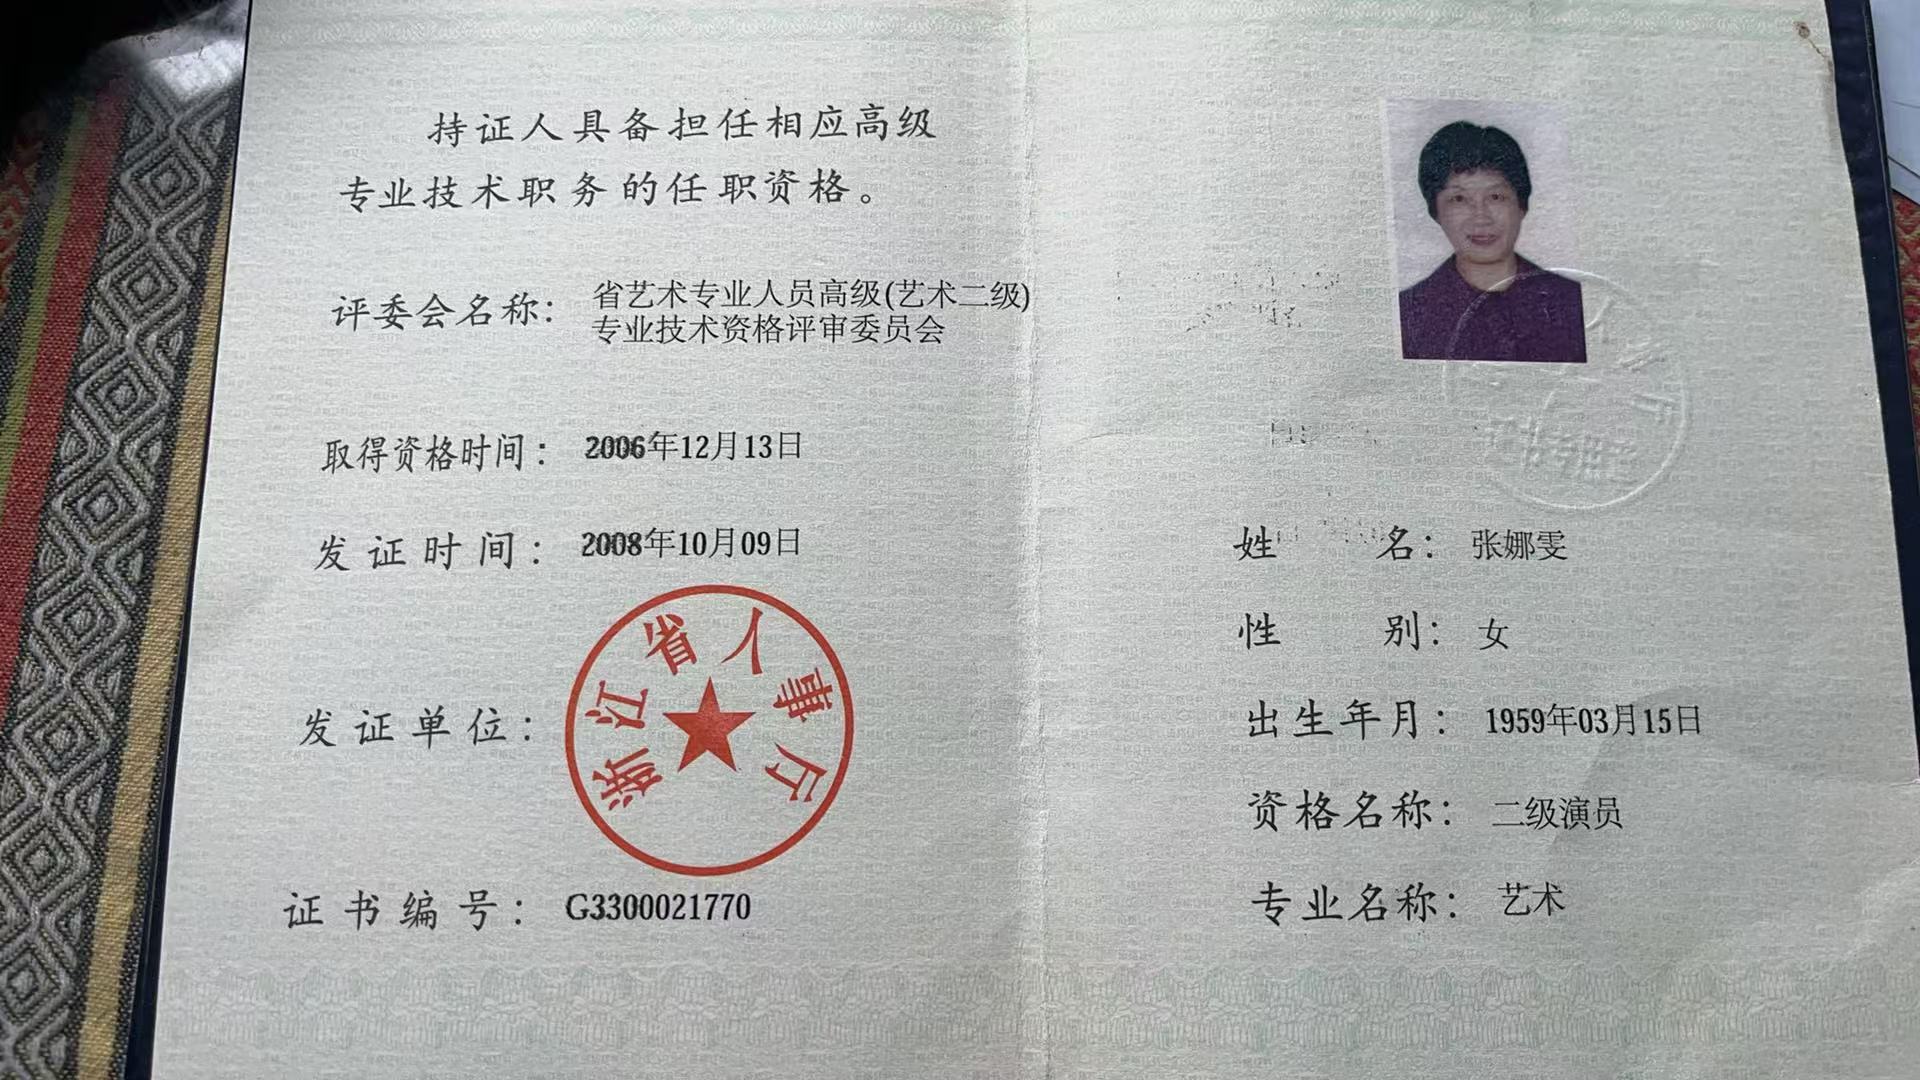 持证人具备担任相应高级
专业技术职务的任职资格。
评委会名称: 省艺术专业人员高级(艺术二级)
专业技术资格评审委员会
取得资格时间: 2006年12月13日
发证时间: 2008年10月09日
发证单位:
浙江省人事厅
证书编号: G3300021770
证书专用章
姓名: 张娜雯
性别: 女
出生年月: 1959年03月15日
资格名称: 二级演员
专业名称: 艺术